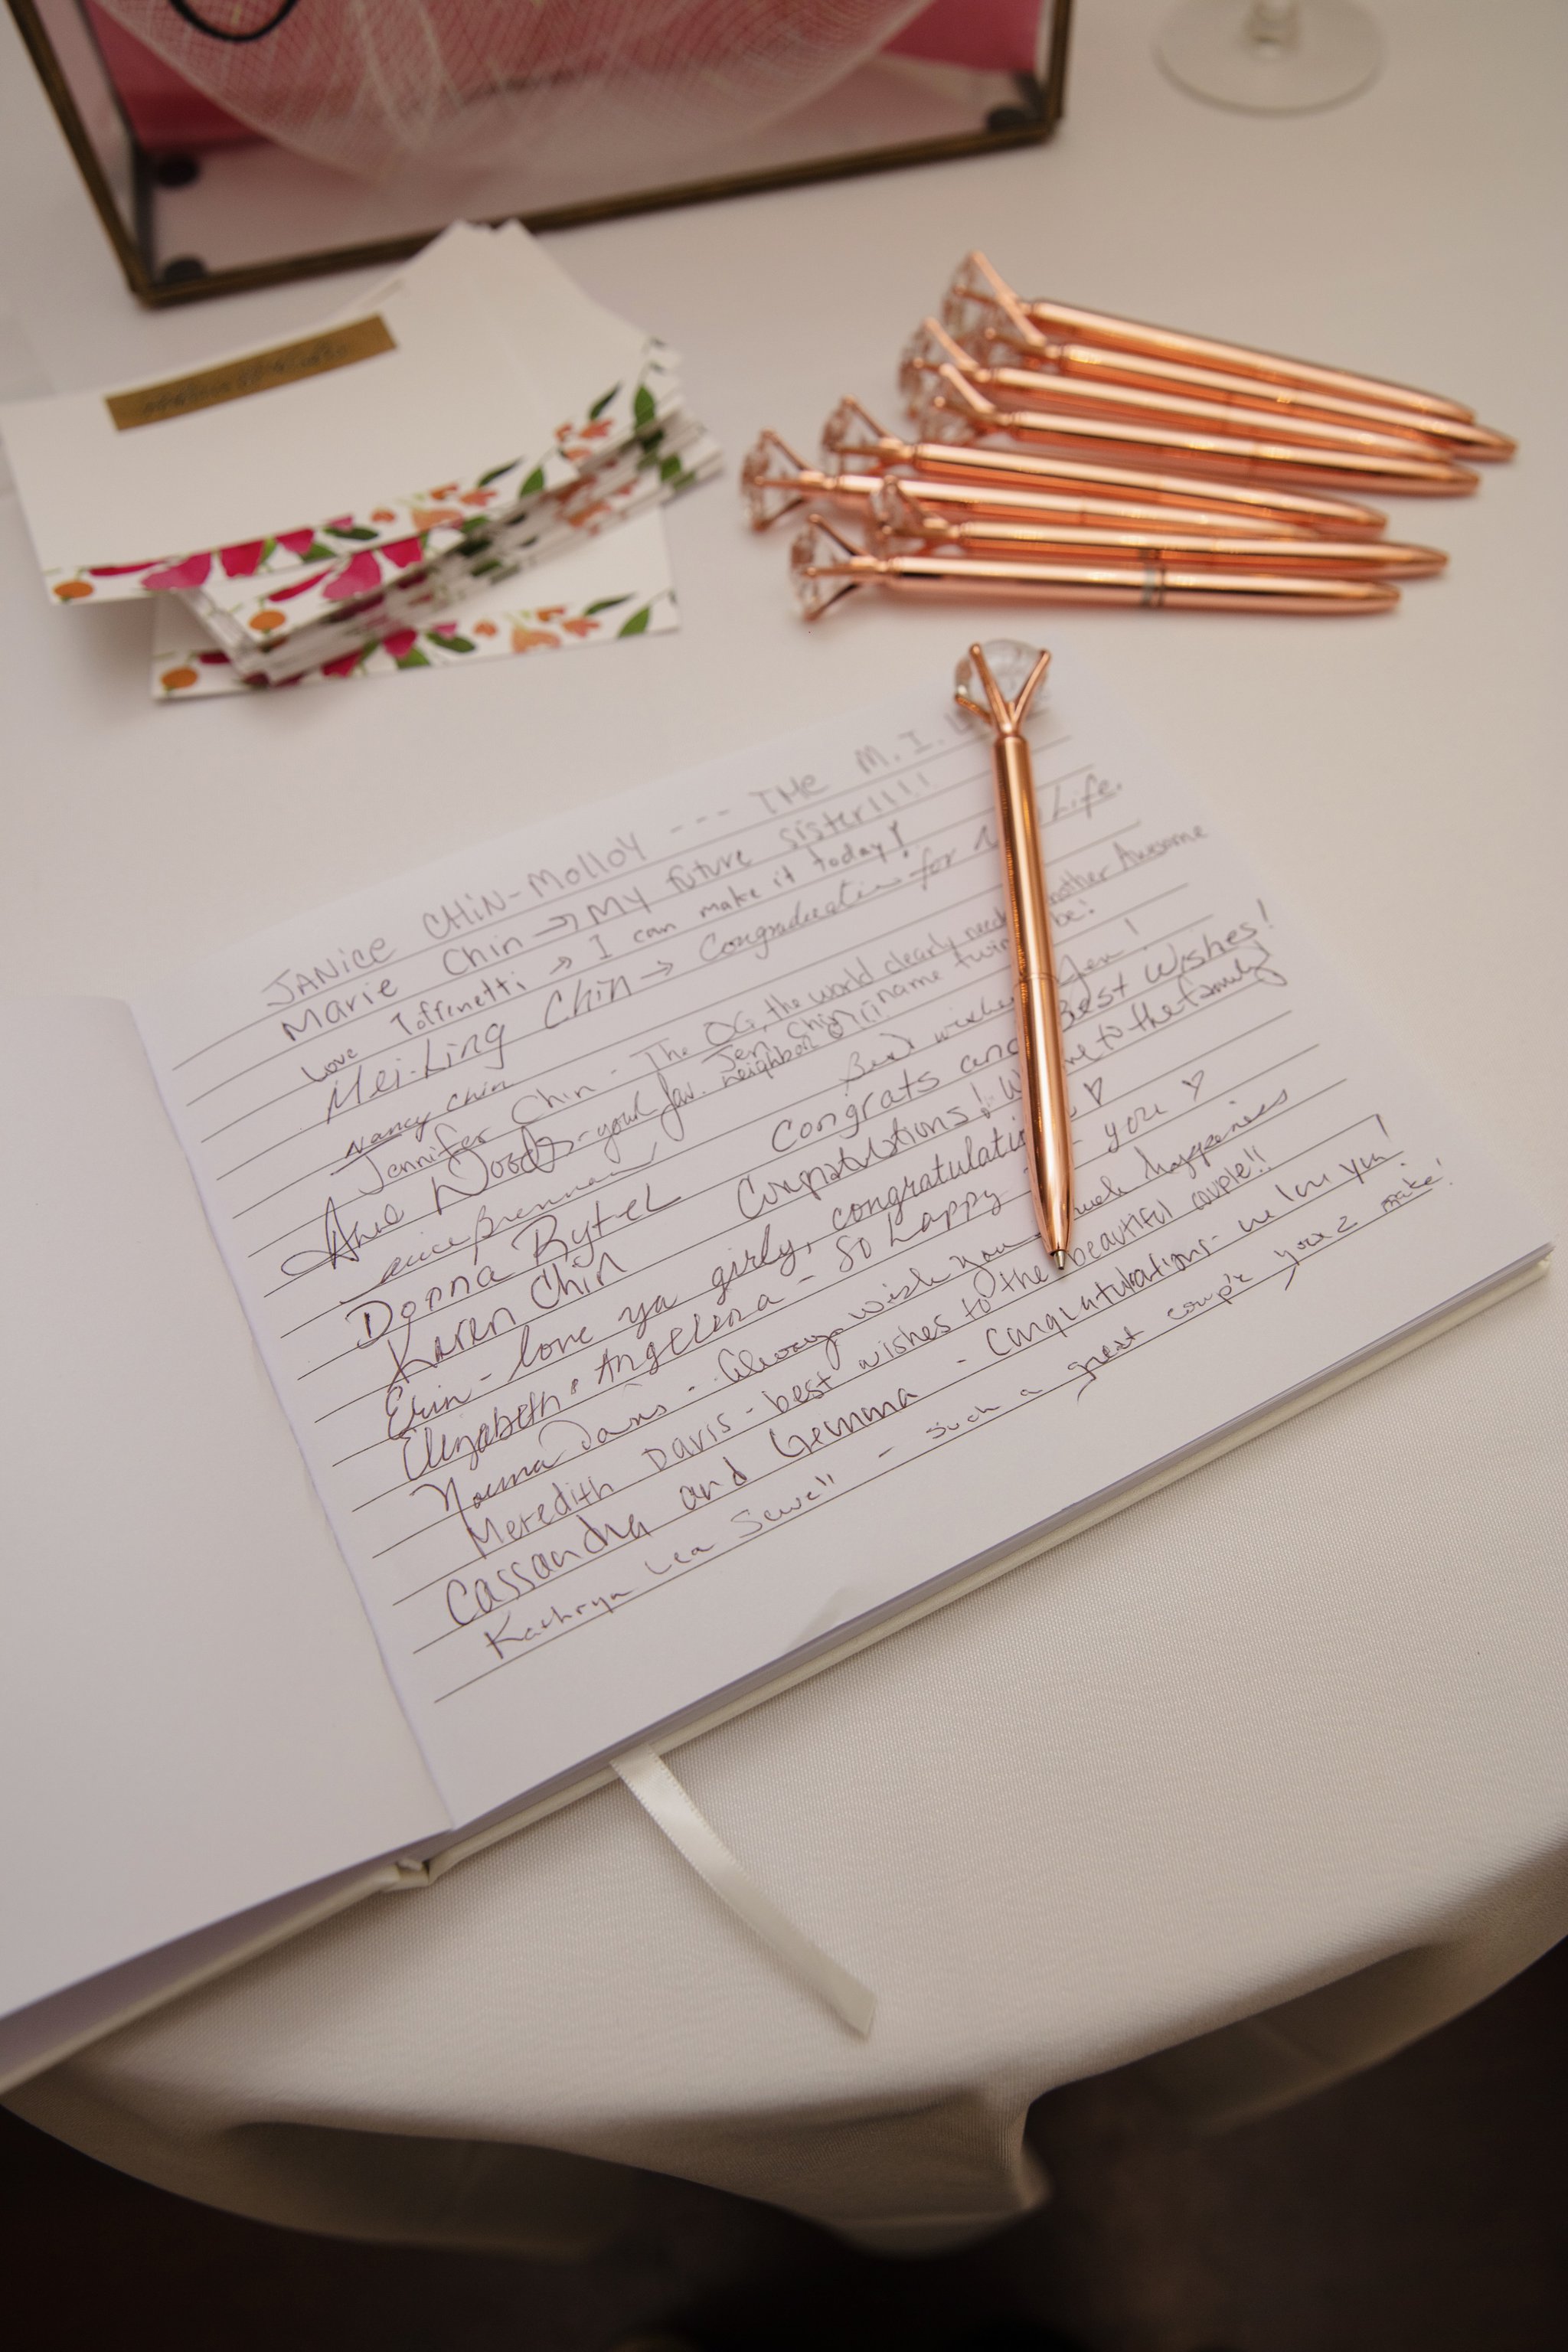 JANICE CHIN-MOLLOY --- THE M.I.L
Marie Chin → My future sister!!!!
Love Toffinetti → I can make it today!
Mei-Ling Chin → Congraduation for Life.
Nancy Chin
Jennifer Chin - The OG, the world clearly needs another Awesome Jen Chin!! name twin be!
Woods - your fav. neighbor
Brennan Best wishes Jen!
Donna Rytel Congrats and Best Wishes!
Karen Chin Congratulations! to the family}
Erin - love ya girly, congratulations ♡
Elizabeth & Angelina - So happy you ♡
Norma Davis - Always wish you much happiness
Meredith Davis - best wishes to the beautiful couple!!
Cassandra and Gemma - Congratulations - we love you!
Kathryn Lea Sewell - such a great couple you 2 make!